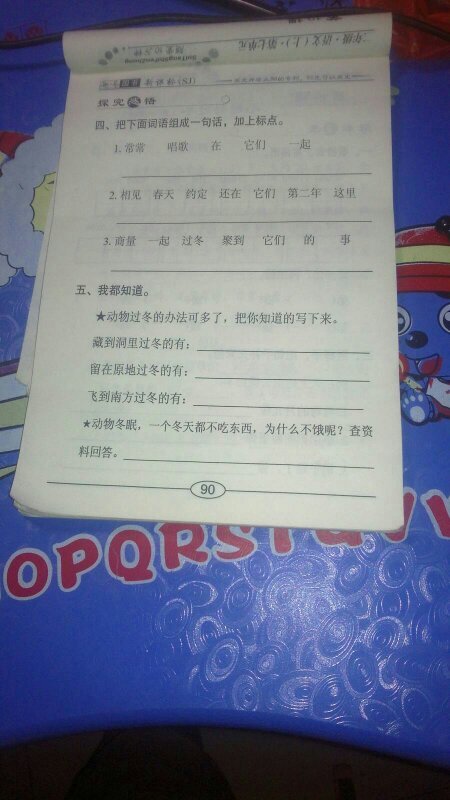 二年级·语文(上)·第七单元
随堂10分钟
SuiTangShiFenZhong
新课标(SJ)
探究感悟
四、把下面词语组成一句话,加上标点。
1.常常 唱歌 在 它们 一起
2.相见 春天 约定 还在 它们 第二年 这里
3.商量 一起 过冬 聚到 它们 的 事
五、我都知道。
★动物过冬的办法可多了,把你知道的写下来。
藏到洞里过冬的有:
留在原地过冬的有:
飞到南方过冬的有:
★动物冬眠,一个冬天都不吃东西,为什么不饿呢?查资
料回答。
90
OPQRSTUV